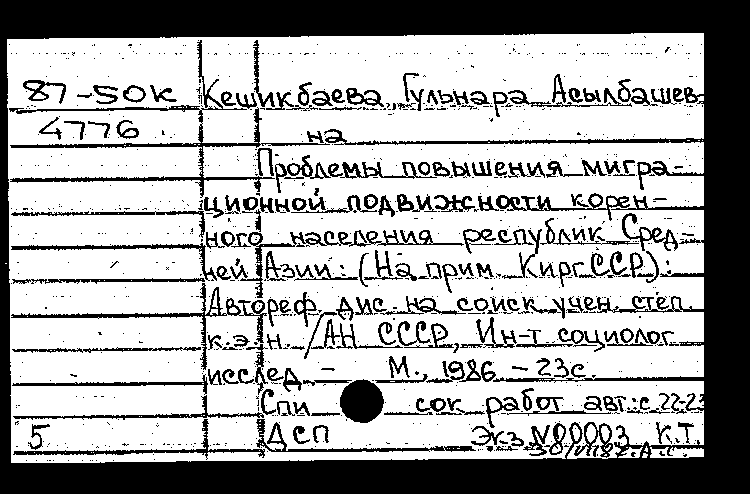 87-50к Кешикбаева, Гульнара Асылбашев-
4776. на
Проблемы повышения мигра-
ционной подвижности корен-
ного населения республик Сред-
ней Азии: (На прим. КиргССР):
Автореф. дис. на соиск. учен. степ.
к.э.н. /АН СССР, Ин-т социолог.
исслед. - М., 1986 - 23с.
Список работ авт.: с.22-23
5 ДСП Экз.N00003 К.Т.